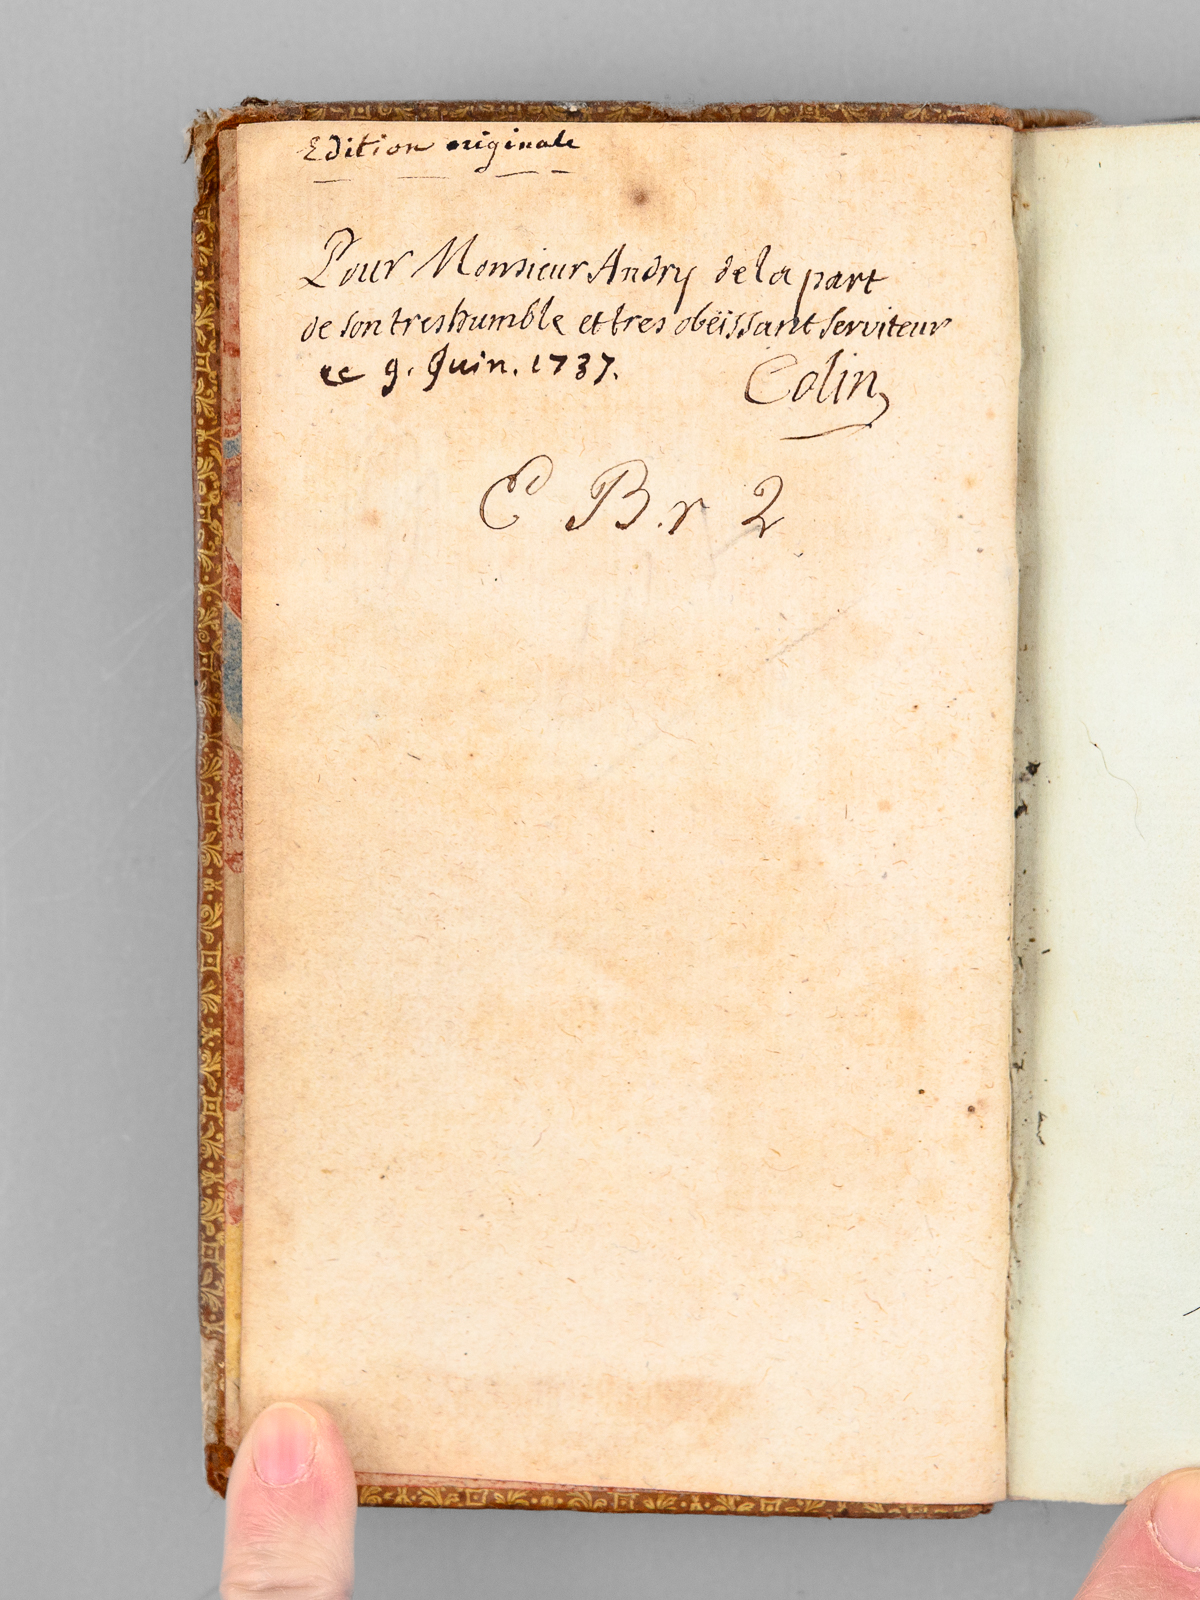 Edition originale
Pour Monsieur Andry de la part
de son tres humble et tres obëissant serviteur
ce 9. Juin. 1737.
Colin
C B.r 2